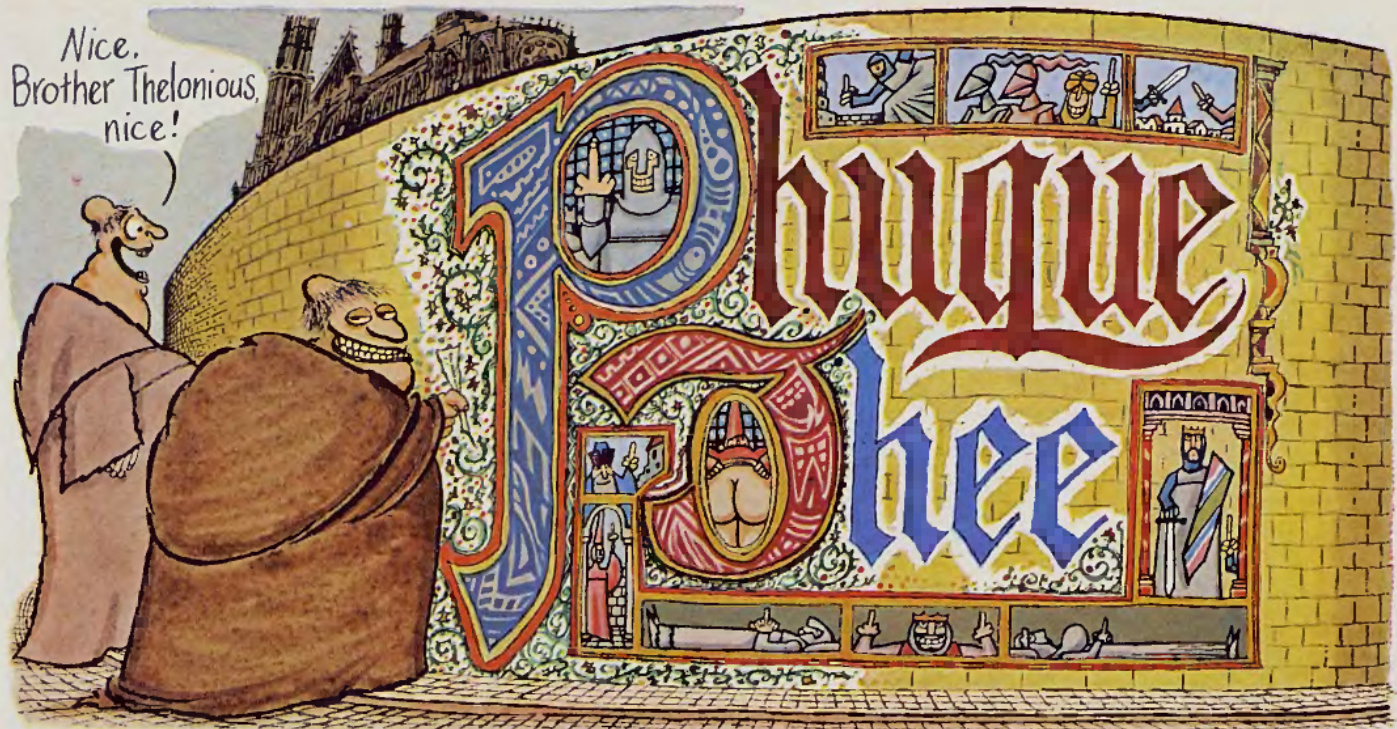 Nice,
Brother Thelonious,
nice!
Phuque
Thee